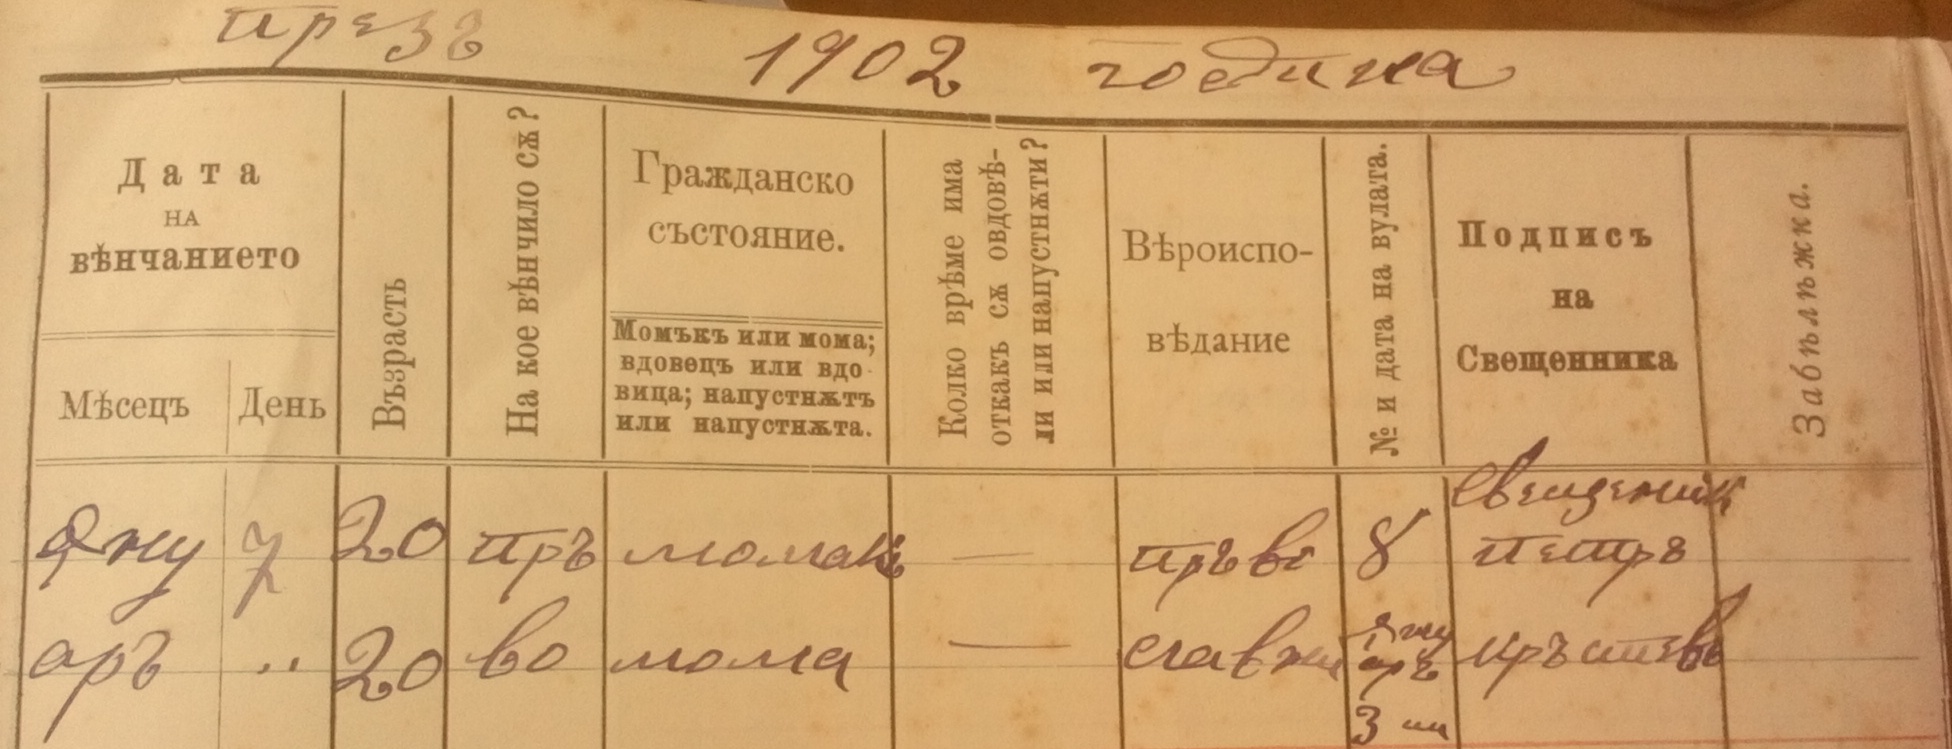 презъ 1902 година
Дата
на
вѣнчанието
Мѣсецъ
День
Възрасть
На кое вѣнчило сѫ?
Гражданско
състояние.
Момъкъ или мома;
вдовецъ или вдо-
вица; напустнѫтъ
или напустнѫта.
Колко врѣме има
откакъ сѫ овдовѣ-
ли или напустнѫти?
Вѣроиспо-
вѣдание
№ и дата на вулата.
Подписъ
на
Свещенника
Забѣлѣжка.
Свещеникъ
Яну 7 20 пръ момакъ — 8 Петръ
аръ „ 20 во мома — славни Януаръ Кръстевъ
3 ий